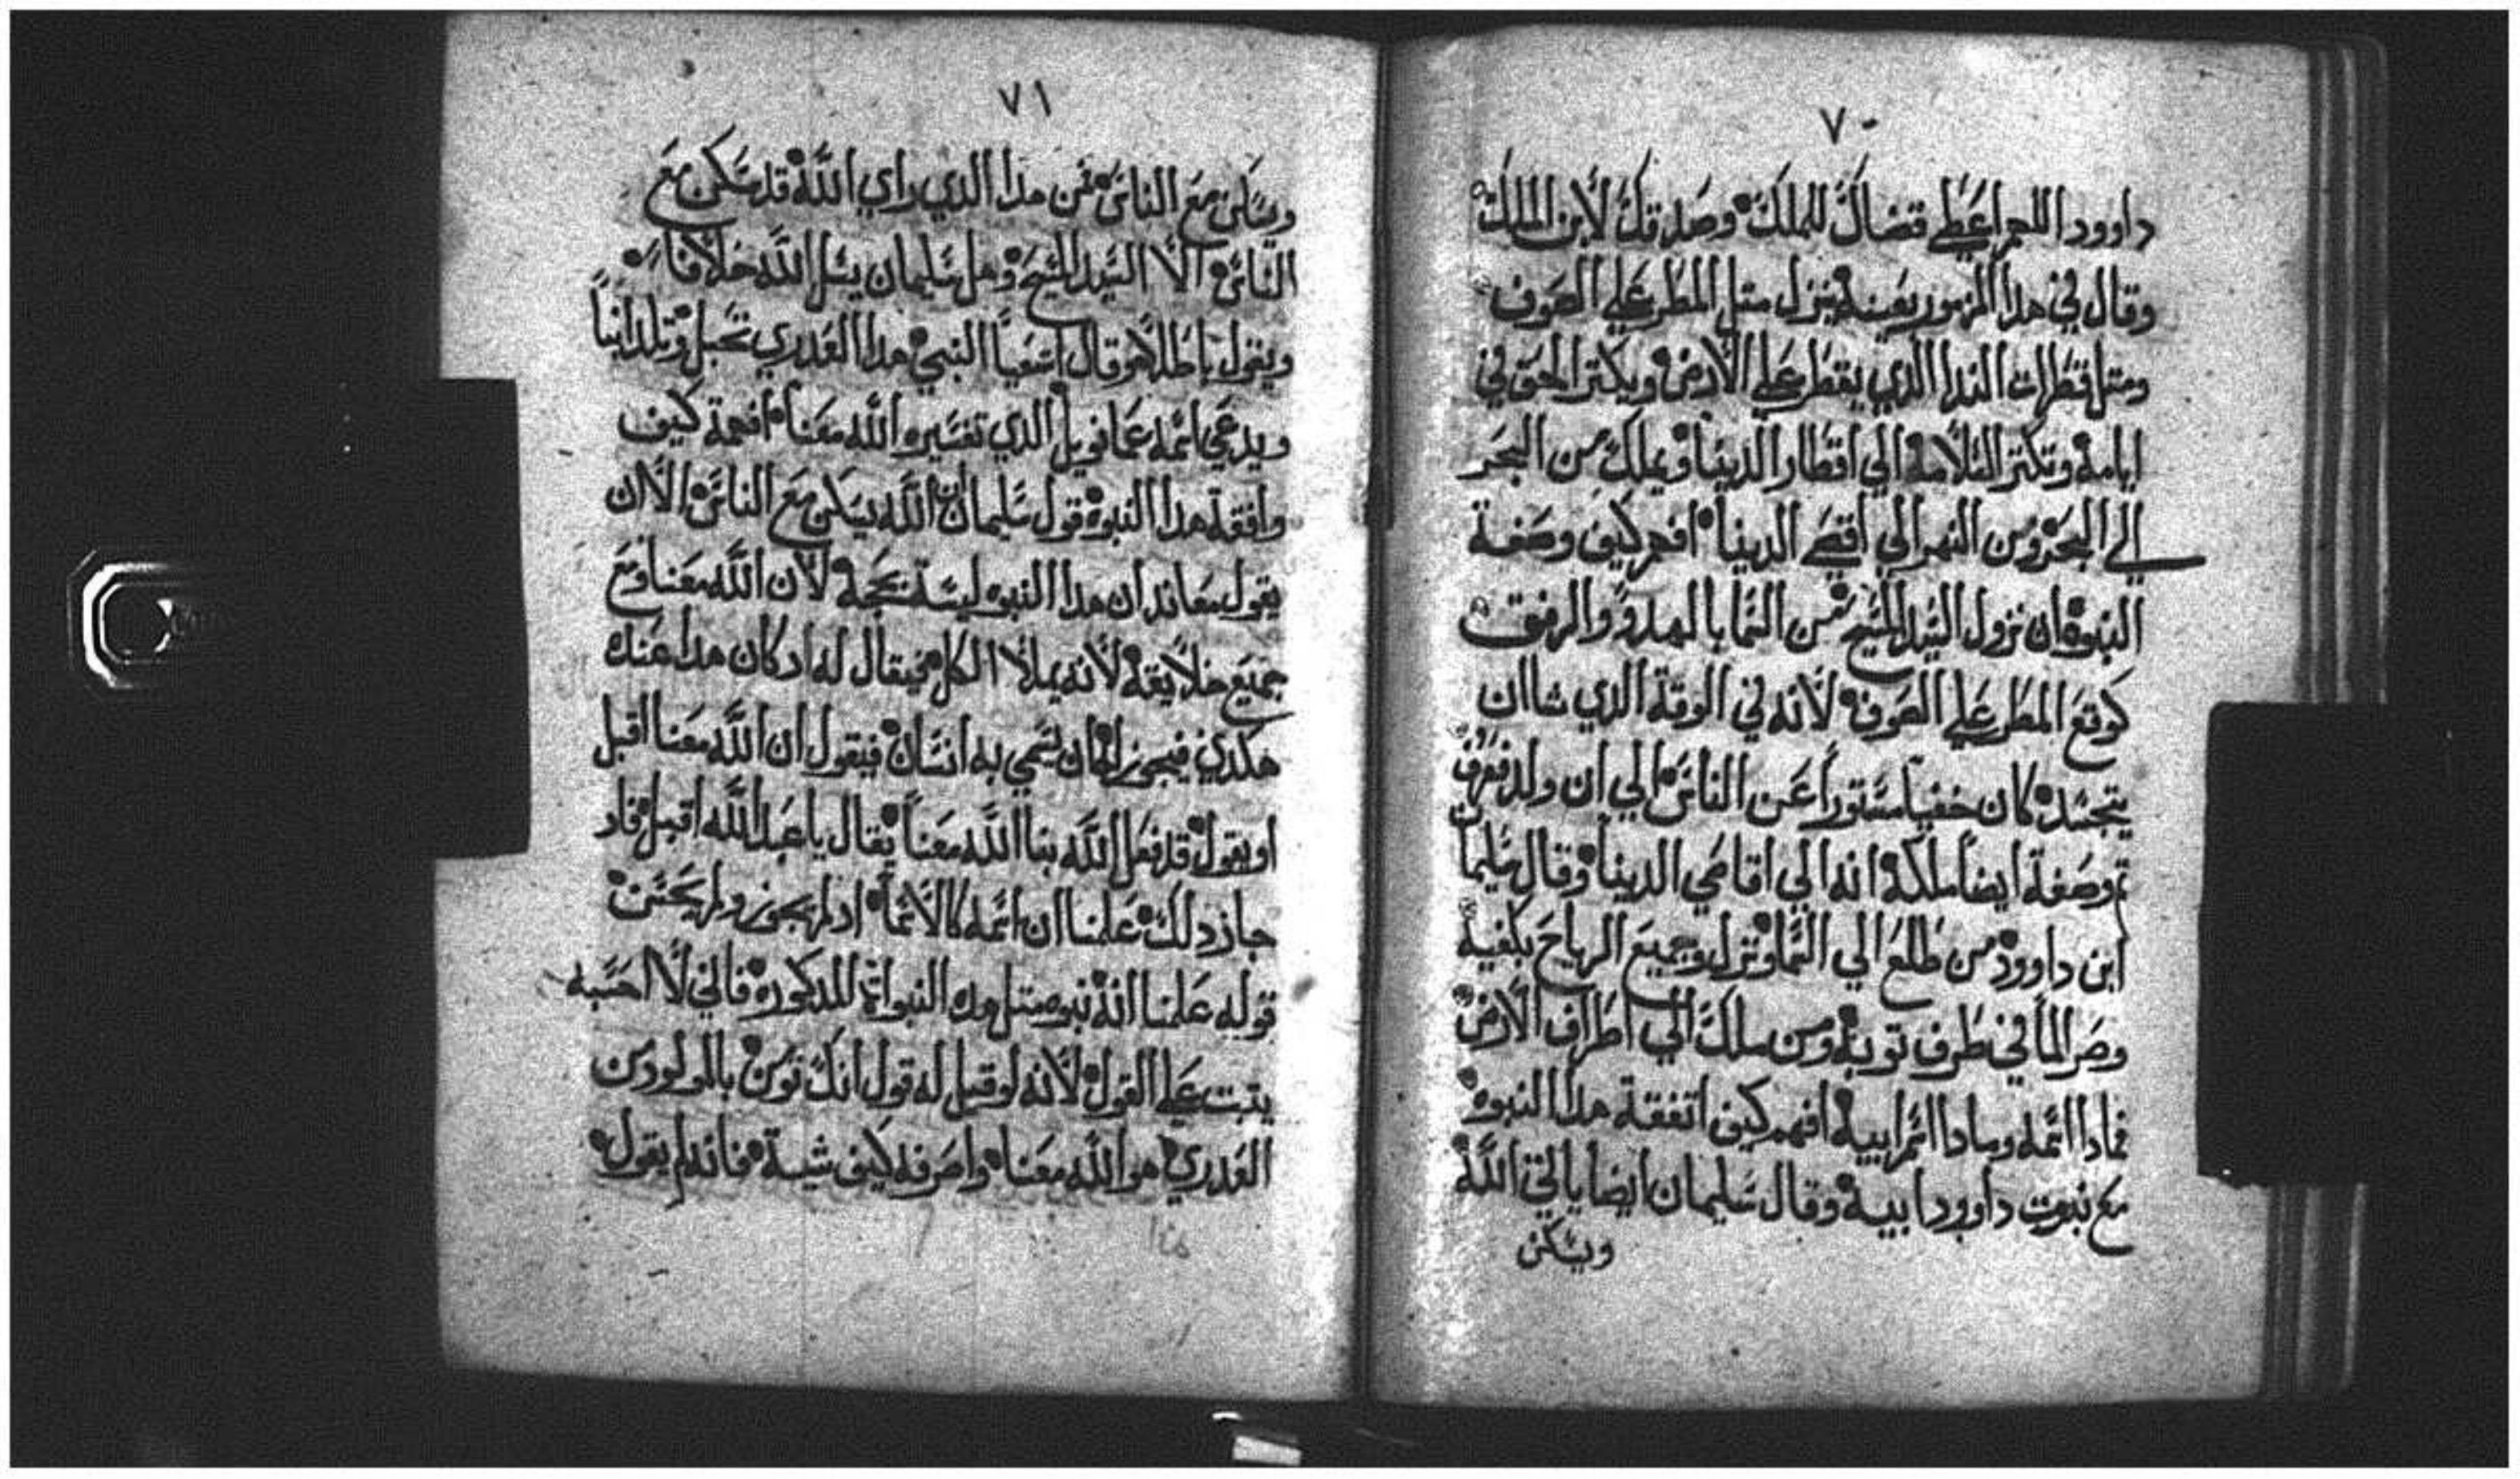 ٧٠
داوود اللهم اعطي قضاك للملك وصدقك لابن الملك
وقال في هدا المزمور بعينه ينزل متل المطر علي الصوف
ومتل قطرات الندا الدي يقطر علي الارض ويكتر الحق في
ايامه وتكتر السلامه الي اقطار الدينا ويملك من البحر
الي البحر ومن النهر الي اقصي الدينا افهم كيف وصفة
النبوه ان نزول السيد المسيح من السما بالهدو والرفق
كوقع المطر علي الصوف لانه في الوقة الدي شا ان
يتجسد كان خفيا مستوراً عن الناس الي ان ولد فعرف
تم وصفة ايضا ملكه انه الي اقاصي الدينا وقال سليما
ابن داوود من طلع الي السما ونزل وجميع الرياح بكفيه
وصر الما في طرف توبه ومن ملك الي اطراف الارض
فمادا اسمه ومادا اسم ابيه افهم كيف اتفقة هدا النبوه
مع نبوت داوود ابيه وقال سليمان ايضا ياتي الله
ويسكن
٧١
ويسكن مع الناس فمن هدا الدي راي الله قد سكن مع
الناس الا السيد المسيح وهل سليمان يسل الله خلافا
ويقول باطلا وقال اشعيا النبي هدا العدري تحبل وتلد ابناً
ويدعي اسمه عمانويل الدي تفسيره الله معنا افهمة كيف
وافقة هدا النبوه قول سليمان ان الله يسكن مع الناس الا ان
يقول معاند ان هدا النبوه ليسة بحجه لان الله معنا ومع
جميع خلايقه لانه يملا الكل فيقال له اد كان هدا عندك
هكدي فيجوز ان يسمي به انسان فيقول ان الله معنا اقبل
او يقول قد فعل الله بنا الله معنا يقال يا عبد الله اقبل فاد
جاز دلك علمنا ان اسمه كالاسما اد لم يجوز ولم يحسن
قوله علمنا انه نبوه متل هده النبواة المدكوره فاني لا احسبه
يتبت علي القول لانه لو قيل له قول انك تومن بالمولود من
العدري هو الله معنا واصرفه كيف شية فانه لم يقول